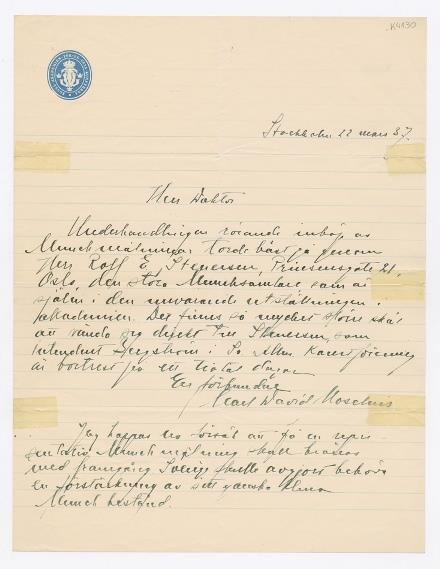 K4130
Stockholm 22 mars 37.
Herr Doktor
Underhandlingar rörande inköp av
Munchmålningar torde bäst gå genom
Herr Rolf E. Stenersen, Prinsensgate 21,
Oslo, den store Munchsamlare, som är
själen i den nuvarande utställningen i
akademien. Det finns så mycket större skäl
att vända sig direkt till Stenersen, som
Intendent
är bortrest på ett tiotal dagar
Er förbundne
Carl David Moselius
Jag hoppas försök att få en
Munch målning skall
med framgång Sverige skulle avgjort behöva
en förstärkning av sitt ganska
Munch bestånd.